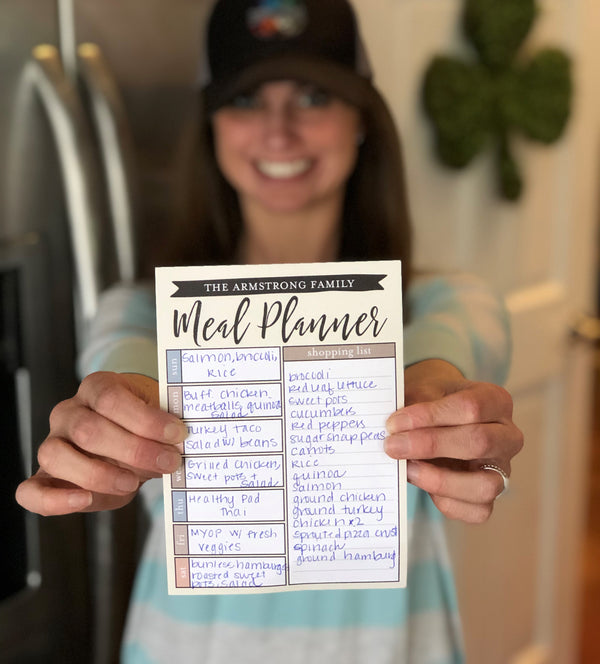 THE ARMSTRONG FAMILY
Meal Planner
sun
Salmon, brocoli,
Rice
mon
Buff. chicken
meatballs, quinoa
Salad
Turkey Taco
Salad w/ beans
we
Grilled chicken,
sweet pots +
Salad
thu
Healthy Pad
Thai
fri
MYOP w/ fresh
veggies
sat
bunless hamburgs
roasted sweet
pots, salad
shopping list
brocoli
red leaf lettuce
sweet pots
cucumbers
red peppers
sugar snap peas
carrots
rice
quinoa
salmon
ground chicken
ground turkey
chicken x 2
sprouted pizza crust
spinach
ground hamburg